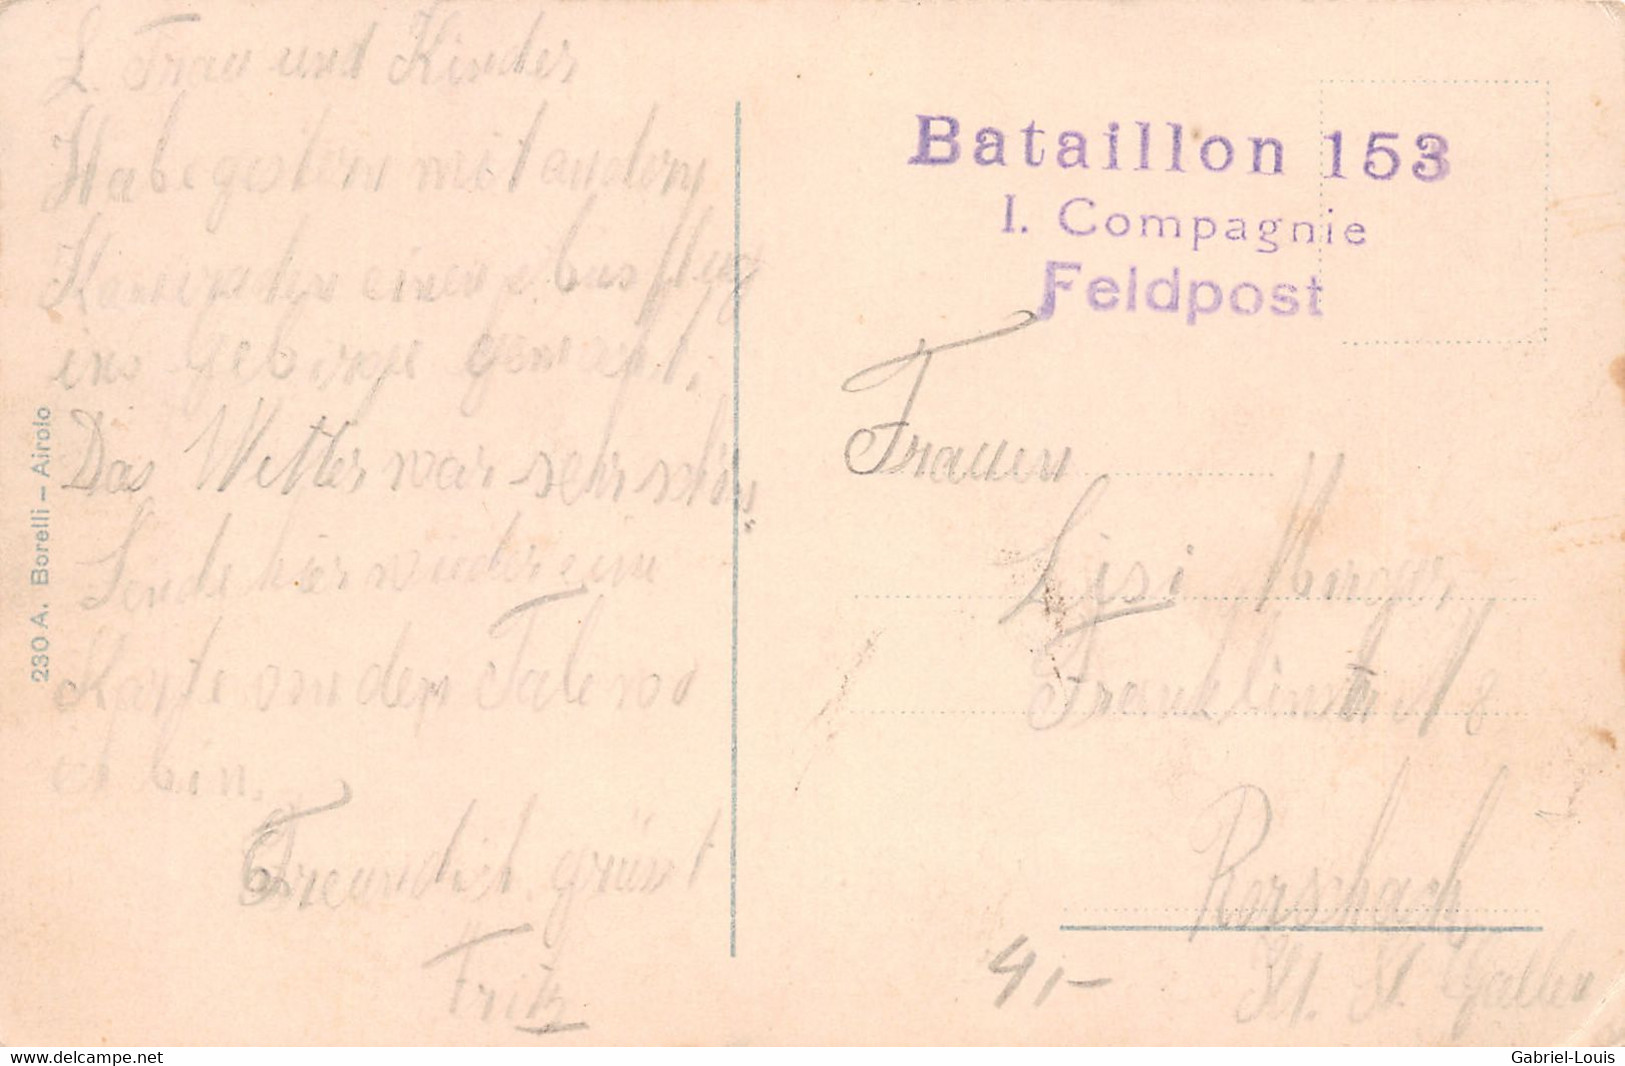 L. Frau und Kinder
Habe gestern mit andern
Kameraden einen Ausflug
ins Gebirge gemacht.
Das Wetter war sehr schön,
Sende hier wieder eine
Karte von dem Tale wo
ich bin.
Freundlich grüsst
Fritz
230 A. Borelli – Airolo
Bataillon 153
I. Compagnie
Feldpost
Frauen
Lisi
Franklinstr 8
Rorschach
Kt. St. Gallen
4,-
delcampe.net
Gabriel-Louis